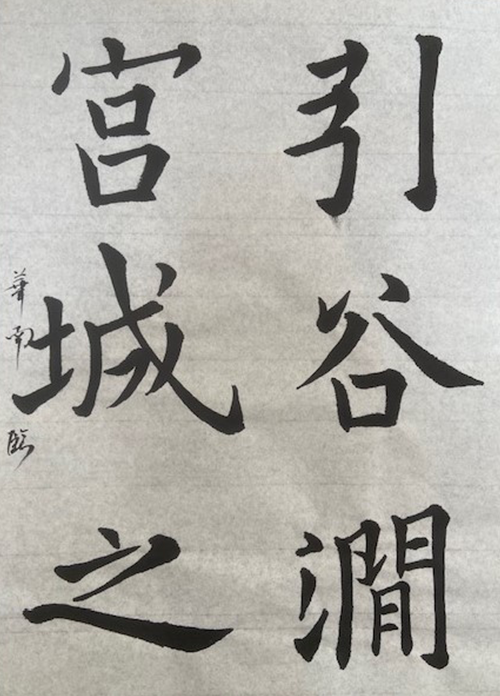 引谷澗
宮城之
華南臨